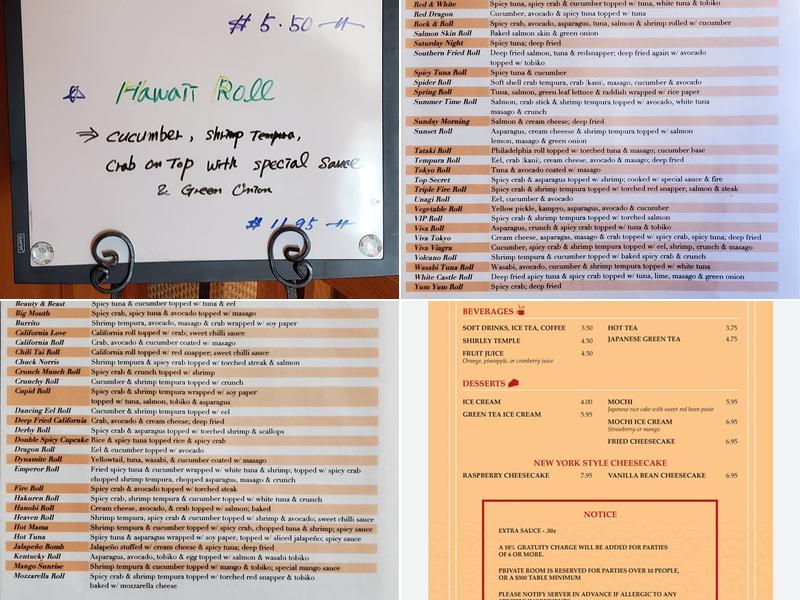 # 5.50
Hawaii Roll
⇒ cucumber, shrimp Tempura,
Crab on Top with special Sauce
& Green Onion
# 11.95
Red & White Spicy tuna, spicy crab & cucumber topped w/ tuna, white tuna & tobiko
Red Dragon Cucumber, avocado & spicy tuna topped w/ tuna
Rock & Roll Spicy crab, avocado, asparagus, tuna, salmon & shrimp rolled w/ cucumber
Salmon Skin Roll Baked salmon skin & green onion
Saturday Night Spicy tuna; deep fried
Southern Fried Roll Deep fried salmon, tuna & redsnapper; deep fried again w/ avocado
topped w/ tobiko
Spicy Tuna Roll Spicy tuna & cucumber
Spider Roll Soft shell crab tempura, crab (kani), masago, cucumber & avocado
Spring Roll Tuna, salmon, green leaf lettuce & raddish wrapped w/ rice paper
Summer Time Roll Salmon, crab stick & shrimp tempura topped w/ avocado, white tuna
masago & crunch
Sunday Morning Salmon & cream cheese; deep fried
Sunset Roll Asparagus, cream cheeese & shrimp tempura topped w/ salmon
lemon, masago & green onion
Tataki Roll Philadelphia roll topped w/ torched tuna & masago; cucumber base
Tempura Roll Eel, crab (kani), cream cheese, avocado & masago; deep fried
Tokyo Roll Tuna & avocado coated w/ masago
Top Secret Spicy crab & asparagus topped w/ shrimp; cooked w/ special sauce & fire
Triple Fire Roll Spicy crab & shrimp tempura topped w/ torched red snapper, salmon & steak
Unagi Roll Eel, cucumber & avocado
Vegetable Roll Yellow pickle, kampyo, asparagus, avocado & cucumber
VIP Roll Spicy crab & shrimp tempura topped w/ torched salmon
Viva Roll Asparagus, crunch & spicy crab topped w/ tuna & tobiko
Viva Tokyo Cream cheese, asparagus, masago & crab topped w/ spicy crab, spicy tuna; deep fried
Viva Viagra Cucumber, spicy crab & shrimp tempura topped w/ eel, shrimp, crunch & masago
Volcano Roll Shrimp tempura & cucumber topped w/ baked spicy crab & crunch
Wasabi Tuna Roll Wasabi, avocado, cucumber & shrimp tempura topped w/ white tuna
White Castle Roll Deep fried spicy tuna & spicy crab topped w/ tuna, lime, masago & green onion
Yum Yum Roll Spicy crab; deep fried
Beauty & Beast Spicy tuna & cucumber topped w/ tuna & eel
Big Mouth Spicy crab, spicy tuna & avocado topped w/ masago
Burrito Shrimp tempura, avocado, masago & crab wrapped w/ soy paper
California Love California roll topped w/ crab; sweet chilli sauce
California Roll Crab, avocado & cucumber coated w/ masago
Chili Tai Roll California roll topped w/ red snapper, sweet chilli sauce
Chuck Norris Shrimp tempura & spicy crab topped w/ torched steak & salmon
Crunch Munch Roll Spicy crab & crunch topped w/ shrimp
Crunchy Roll Cucumber & shrimp tempura topped w/ crunch
Cupid Roll Spicy crab & shrimp tempura wrapped w/ soy paper
topped w/ tuna, salmon, tobiko & asparagus
Dancing Eel Roll Cucumber & shrimp tempura topped w/ eel
Deep Fried California Crab, avocado & cream cheese; deep fried
Derby Roll Spicy crab & asparagus topped w/ torched shrimp & scallops
Double Spicy Cupcake Rice & spicy tuna topped rice & spicy crab
Dragon Roll Eel & cucumber topped w/ avocado
Dynamite Roll Yellowtail, tuna, wasabi, & cucumber coated w/ masago
Emperor Roll Fried spicy tuna & cucumber wrapped w/ white tuna & shrimp; topped w/ spicy crab
chopped shrimp tempura, chopped asparagus, masago & crunch
Fire Roll Spicy crab & avocado topped w/ torched steak
Hakuren Roll Spicy crab, shrimp tempura & cucumber topped w/ white tuna & crunch
Hanobi Roll Cream cheese, avocado, & crab topped w/ salmon; baked
Heaven Roll Shrimp tempura, spicy crab & cucumber topped w/ shrimp & avocado; sweet chilli sauce
Hot Mama Shrimp tempura & cucumber topped w/ spicy crab, chopped tuna & shrimp; spicy sauce
Hot Tuna Spicy tuna & asparagus wrapped w/ soy paper, topped w/ sliced jalapeño; spicy sauce
Jalapeño Bomb Jalapeño stuffed w/ cream cheese & spicy tuna; deep fried
Kentucky Roll Asparagus, avocado, tobiko & egg topped w/ salmon & wasabi tobiko
Mango Sunrise Shrimp tempura & cucumber topped w/ mango & tobiko; special mango sauce
Mozzarella Roll Spicy crab & shrimp tempura topped w/ torched red snapper & tobiko
baked w/ mozzarella cheese
BEVERAGES
SOFT DRINKS, ICE TEA, COFFEE 3.50 HOT TEA 3.75
SHIRLEY TEMPLE 4.50 JAPANESE GREEN TEA 4.75
FRUIT JUICE 4.50
Orange, pineapple, or cranberry juice
DESSERTS
ICE CREAM 4.00 MOCHI 5.95
Japanese rice cake with sweet red bean paste
GREEN TEA ICE CREAM 5.95 MOCHI ICE CREAM 6.95
Strawberry or mango
FRIED CHEESECAKE 6.95
NEW YORK STYLE CHEESECAKE
RASPBERRY CHEESECAKE 7.95 VANILLA BEAN CHEESECAKE 6.95
NOTICE
EXTRA SAUCE - .50¢
A 18% GRATUITY CHARGE WILL BE ADDED FOR PARTIES
OF 6 OR MORE.
PRIVATE ROOM IS RESERVED FOR PARTIES OVER 10 PEOPLE,
OR A $300 TABLE MINIMUM
PLEASE NOTIFY SERVER IN ADVANCE IF ALLERGIC TO ANY